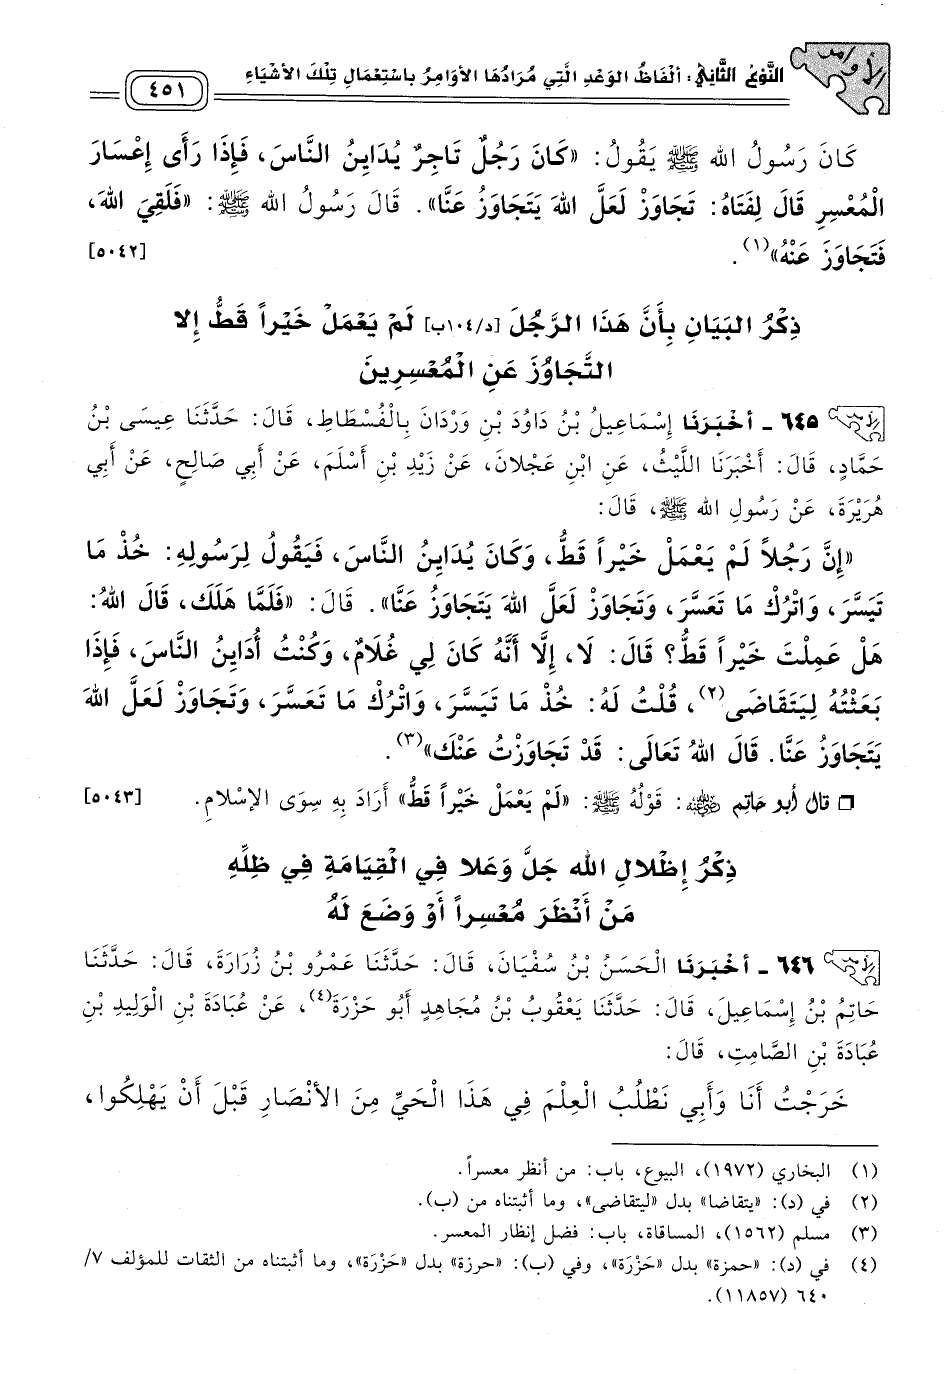 الأوامر
النَّوْعُ الثَّانِي: ألفَاظُ الوَعْدِ الَّتِي مُرَادُهَا الأوَامِرُ بِاسْتِعْمَالِ تِلْكَ الأشْيَاءِ
٤٥١
كَانَ رَسُولُ الله ﷺ يَقُولُ: «كَانَ رَجُلٌ تَاجِرٌ يُدَايِنُ النَّاسَ، فَإِذَا رَأَى إِعْسَارَ
الْمُعْسِرِ قَالَ لِفَتَاهُ: تَجَاوَزْ لَعَلَّ اللهَ يَتَجَاوَزُ عَنَّا». قَالَ رَسُولُ الله ﷺ: «فَلَقِيَ اللهَ،
فَتَجَاوَزَ عَنْهُ»(١). [٥٠٤٢]
ذِكْرُ البَيَانِ بِأَنَّ هَذَا الرَّجُلَ [د/١٠٤ب] لَمْ يَعْمَلْ خَيْراً قَطُّ إِلا
التَّجَاوُزَ عَنِ الْمُعْسِرِينَ
٦٤٥ - أخْبَرَنَا إِسْمَاعِيلُ بْنُ دَاوُدَ بْنِ وَرْدَانَ بِالْفُسْطَاطِ، قَالَ: حَدَّثَنَا عِيسَى بْنُ
حَمَّادٍ، قَالَ: أَخْبَرَنَا اللَّيْثُ، عَنِ ابْنِ عَجْلانَ، عَنْ زَيْدِ بْنِ أَسْلَمَ، عَنْ أَبِي صَالِحٍ، عَنْ أَبِي
هُرَيْرَةَ، عَنْ رَسُولِ الله ﷺ، قَالَ:
«إِنَّ رَجُلاً لَمْ يَعْمَلْ خَيْراً قَطُّ، وَكَانَ يُدَايِنُ النَّاسَ، فَيَقُولُ لِرَسُولِهِ: خُذْ مَا
تَيَسَّرَ، وَاتْرُكْ مَا تَعَسَّرَ، وَتَجَاوَزْ لَعَلَّ اللهَ يَتَجَاوَزُ عَنَّا». قَالَ: «فَلَمَّا هَلَكَ، قَالَ اللهُ:
هَلْ عَمِلْتَ خَيْراً قَطُّ؟ قَالَ: لَا، إِلَّا أَنَّهُ كَانَ لِي غُلَامٌ، وَكُنْتُ أُدَايِنُ النَّاسَ، فَإِذَا
بَعَثْتُهُ لِيَتَقَاضَى(٢)، قُلْتُ لَهُ: خُذْ مَا تَيَسَّرَ، وَاتْرُكْ مَا تَعَسَّرَ، وَتَجَاوَزْ لَعَلَّ اللهَ
يَتَجَاوَزُ عَنَّا. قَالَ اللهُ تَعَالَى: قَدْ تَجَاوَزْتُ عَنْكَ»(٣).
❒ قال أبو حاتم رضي الله عنه: قَوْلُهُ ﷺ: «لَمْ يَعْمَلْ خَيْراً قَطُّ» أَرَادَ بِهِ سِوَى الإِسْلامِ. [٥٠٤٣]
ذِكْرُ إِظْلالِ الله جَلَّ وَعَلا فِي الْقِيَامَةِ فِي ظِلِّهِ
مَنْ أَنْظَرَ مُعْسِراً أَوْ وَضَعَ لَهُ
٦٤٦ - أخْبَرَنَا الْحَسَنُ بْنُ سُفْيَانَ، قَالَ: حَدَّثَنَا عَمْرُو بْنُ زُرَارَةَ، قَالَ: حَدَّثَنَا
حَاتِمُ بْنُ إِسْمَاعِيلَ، قَالَ: حَدَّثَنَا يَعْقُوبُ بْنُ مُجَاهِدٍ أَبُو حَزْرَةَ(٤)، عَنْ عُبَادَةَ بْنِ الْوَلِيدِ بْنِ
عُبَادَةَ بْنِ الصَّامِتِ، قَالَ:
خَرَجْتُ أَنَا وَأَبِي نَطْلُبُ الْعِلْمَ فِي هَذَا الْحَيِّ مِنَ الأنْصَارِ قَبْلَ أَنْ يَهْلِكُوا،
(١) البخاري (١٩٧٢)، البيوع، باب: من أنظر معسراً.
(٢) في (د): «يتقاضا» بدل «ليتقاضى»، وما أثبتناه من (ب).
(٣) مسلم (١٥٦٢)، المساقاة، باب: فضل إنظار المعسر.
(٤) في (د): «حمزة» بدل «حَزْرَة»، وفي (ب): «حرزة» بدل «حَزْرَة»، وما أثبتناه من الثقات للمؤلف ٧/
٦٤٠ (١١٨٥٧).